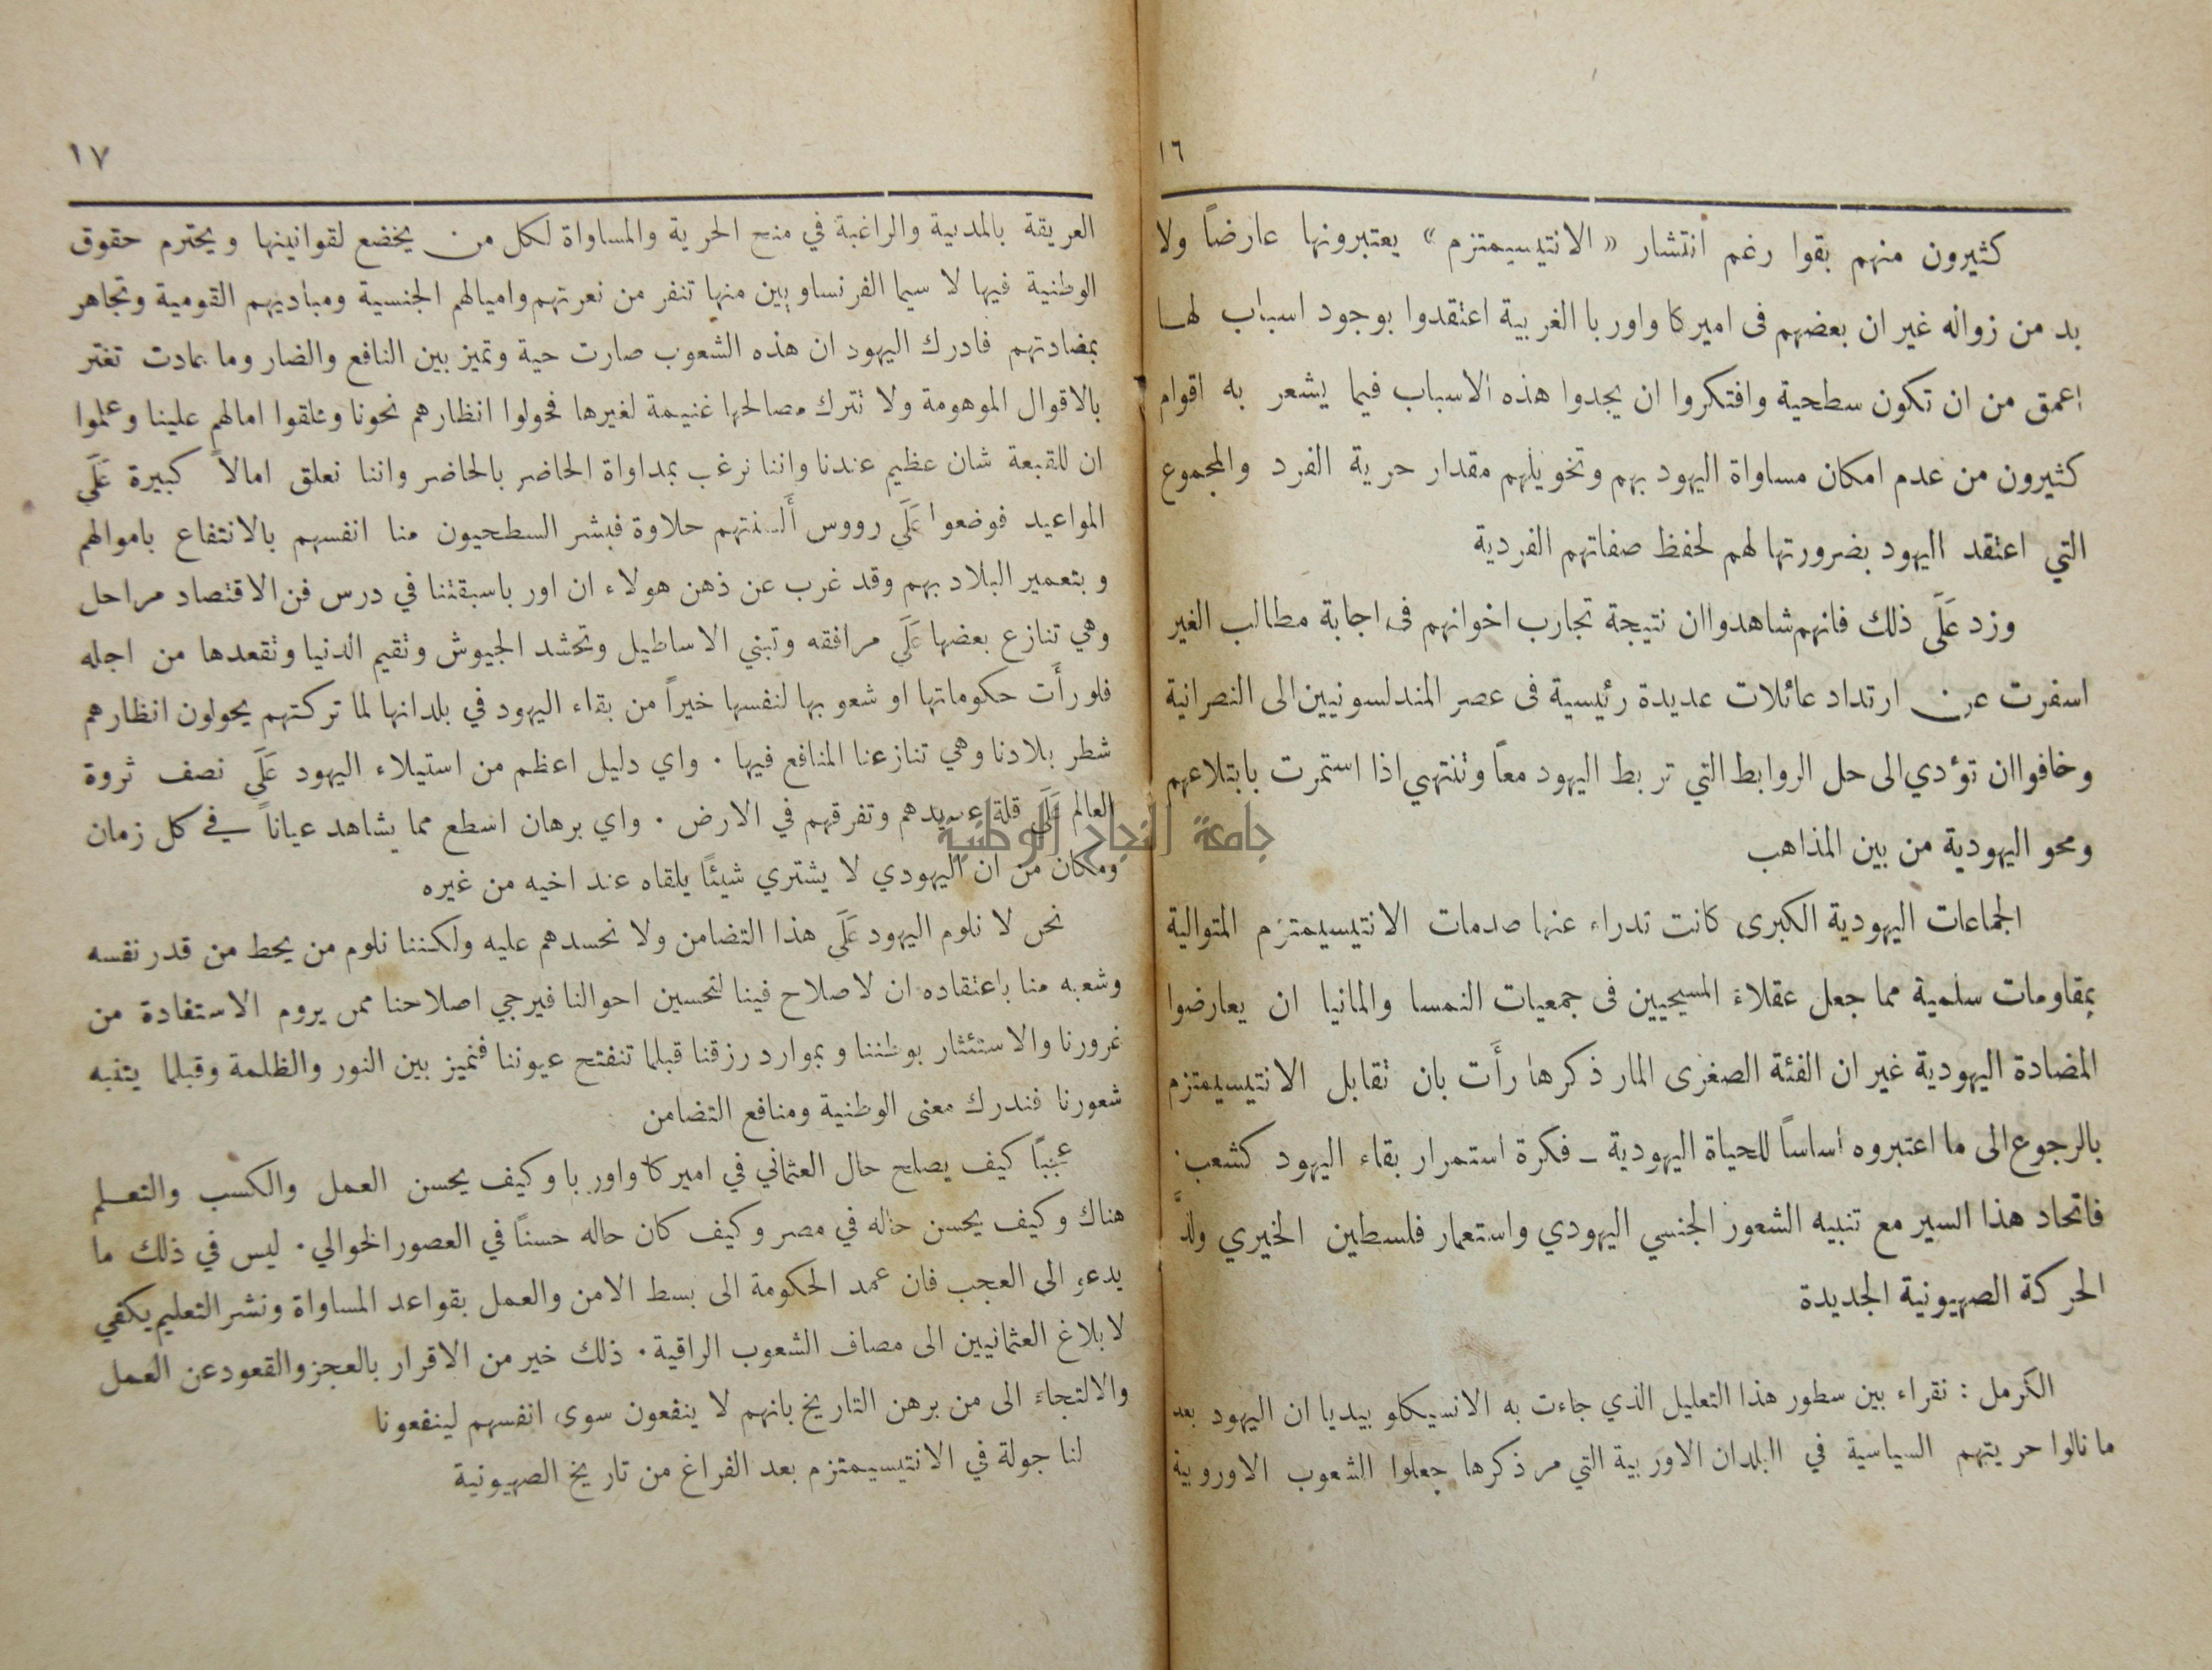 ١٦
كثيرون منهم بقوا رغم انتشار «الانتيسيمتزم» يعتبرونها عارضاً ولا
بد من زواله غير ان بعضهم فى اميركا واوربا الغربية اعتقدوا بوجود اسباب لهـا
اعمق من ان تكون سطحية وافتكروا ان يجدوا هذه الاسباب فيما يشعر به اقوام
كثيرون من عدم امكان مساواة اليهود بهم وتخويلهم مقدار حرية الفرد والمجموع
التي اعتقد اليهود بضرورتها لهم لحفظ صفاتهم الفردية
وزد عَلَى ذلك فانهم شاهدوا ان نتيجة تجارب اخوانهم فى اجابة مطالب الغير
اسفرت عن ارتداد عائلات عديدة رئيسية فى عصر المندلسونيين الى النصرانية
وخافوا ان تؤدي الى حل الروابط التي تربط اليهود معاً وتنتهي اذا استمرت بابتلاعهم
ومحو اليهودية من بين المذاهب
الجماعات اليهودية الكبرى كانت تدراء عنها صدمات الانتيسيمتزم المتوالية
بمقاومات سلمية مما جعل عقلاء المسيحيين فى جمعيات النمسا والمانيا ان يعارضوا
المضادة اليهودية غير ان الفئة الصغرى المار ذكرها رأَت بان تقابل الانتيسيمتزم
بالرجوع الى ما اعتبروه اساساً للحياة اليهودية ــ فكرة استمرار بقاء اليهود كشعب .
فاتحاد هذا السير مع تنبيه الشعور الجنسي اليهودي واستعمار فلسطين الخيري ولَّد
الحركة الصهيونية الجديدة
الكرمل : نقراء بين سطور هذا التعليل الذي جاءت به الانسيكلوبيديا ان اليهود بعد
ما نالوا حريتهم السياسية في البلدان الاوربية التي مر ذكرها جعلوا الشعوب الاوروبية
١٧
العريقة بالمدنية والراغبة في منح الحرية والمساواة لكل من يخضع لقوانينها ويحترم حقوق
الوطنية فيها لا سيما الفرنساويين منها تنفر من نعرتهم واميالهم الجنسية ومباديهم القومية وتجاهر
بمضادتهم فادرك اليهود ان هذه الشعوب صارت حية وتميز بين النافع والضار وما بمادت تغتر
بالاقوال الموهومة ولا تترك مصالحها غنيمة لغيرها فحولوا انظارهم نحونا وعلقوا امالهم علينا وعلموا
ان للقبعة شان عظيم عندنا واننا نرغب بمداواة الحاضر بالحاضر واننا نعلق امالاً كبيرة عَلَى
المواعيد فوضعوا عَلَى رووس أَلسنتهم حلاوة فبشر السطحيون منا انفسهم بالانتفاع باموالهم
وبتعمير البلاد بهم وقد غرب عن ذهن هولاء ان اوربا سبقتنا في درس فن الاقتصاد مراحل
وهي تنازع بعضها عَلَى مرافقه وتبني الاساطيل وتحشد الجيوش وتقيم الدنيا وتقعدها من اجله
فلو رأَت حكوماتها او شعوبها لنفسها خيراً من بقاء اليهود في بلدانها لما تركتهم يحولون انظارهم
شطر بلادنا وهي تنازعنا المنافع فيها . واي دليل اعظم من استيلاء اليهود عَلَى نصف ثروة
العالم عَلَى قلة عديدهم وتفرقهم في الارض . واي برهان اسطع مما يشاهد عياناً في كل زمان
ومكان من ان اليهودي لا يشتري شيئاً يلقاه عند اخيه من غيره
نحن لا نلوم اليهود عَلَى هذا التضامن ولا نحسدهم عليه ولكننا نلوم من يحط من قدر نفسه
وشعبه منا باعتقاده ان لا صلاح فينا لتحسين احوالنا فيرجي اصلاحنا ممن يروم الاستفادة من
غرورنا والاستئثار بوطننا وبموارد رزقنا قبلما تنفتح عيوننا فنميز بين النور والظلمة وقبلما يتنبه
شعورنا فندرك معنى الوطنية ومنافع التضامن
عجباً كيف يصلح حال العثماني في اميركا واوربا وكيف يحسن العمل والكسب والتعـلم
هناك وكيف يحسن حاله في مصر وكيف كان حاله حسناً في العصور الخوالي . ليس في ذلك ما
يدعو الى العجب فان عمد الحكومة الى بسط الامن والعمل بقواعد المساواة ونشر التعليم يكفي
لابلاغ العثمانيين الى مصاف الشعوب الراقية . ذلك خير من الاقرار بالعجز والقعود عن العمل
والالتجاء الى من برهن التاريخ بانهم لا ينفعون سوى انفسهم لينفعونا
لنا جولة في الانتيسيمتزم بعد الفراغ من تاريخ الصهيونية
جامعة النجاح الوطنية